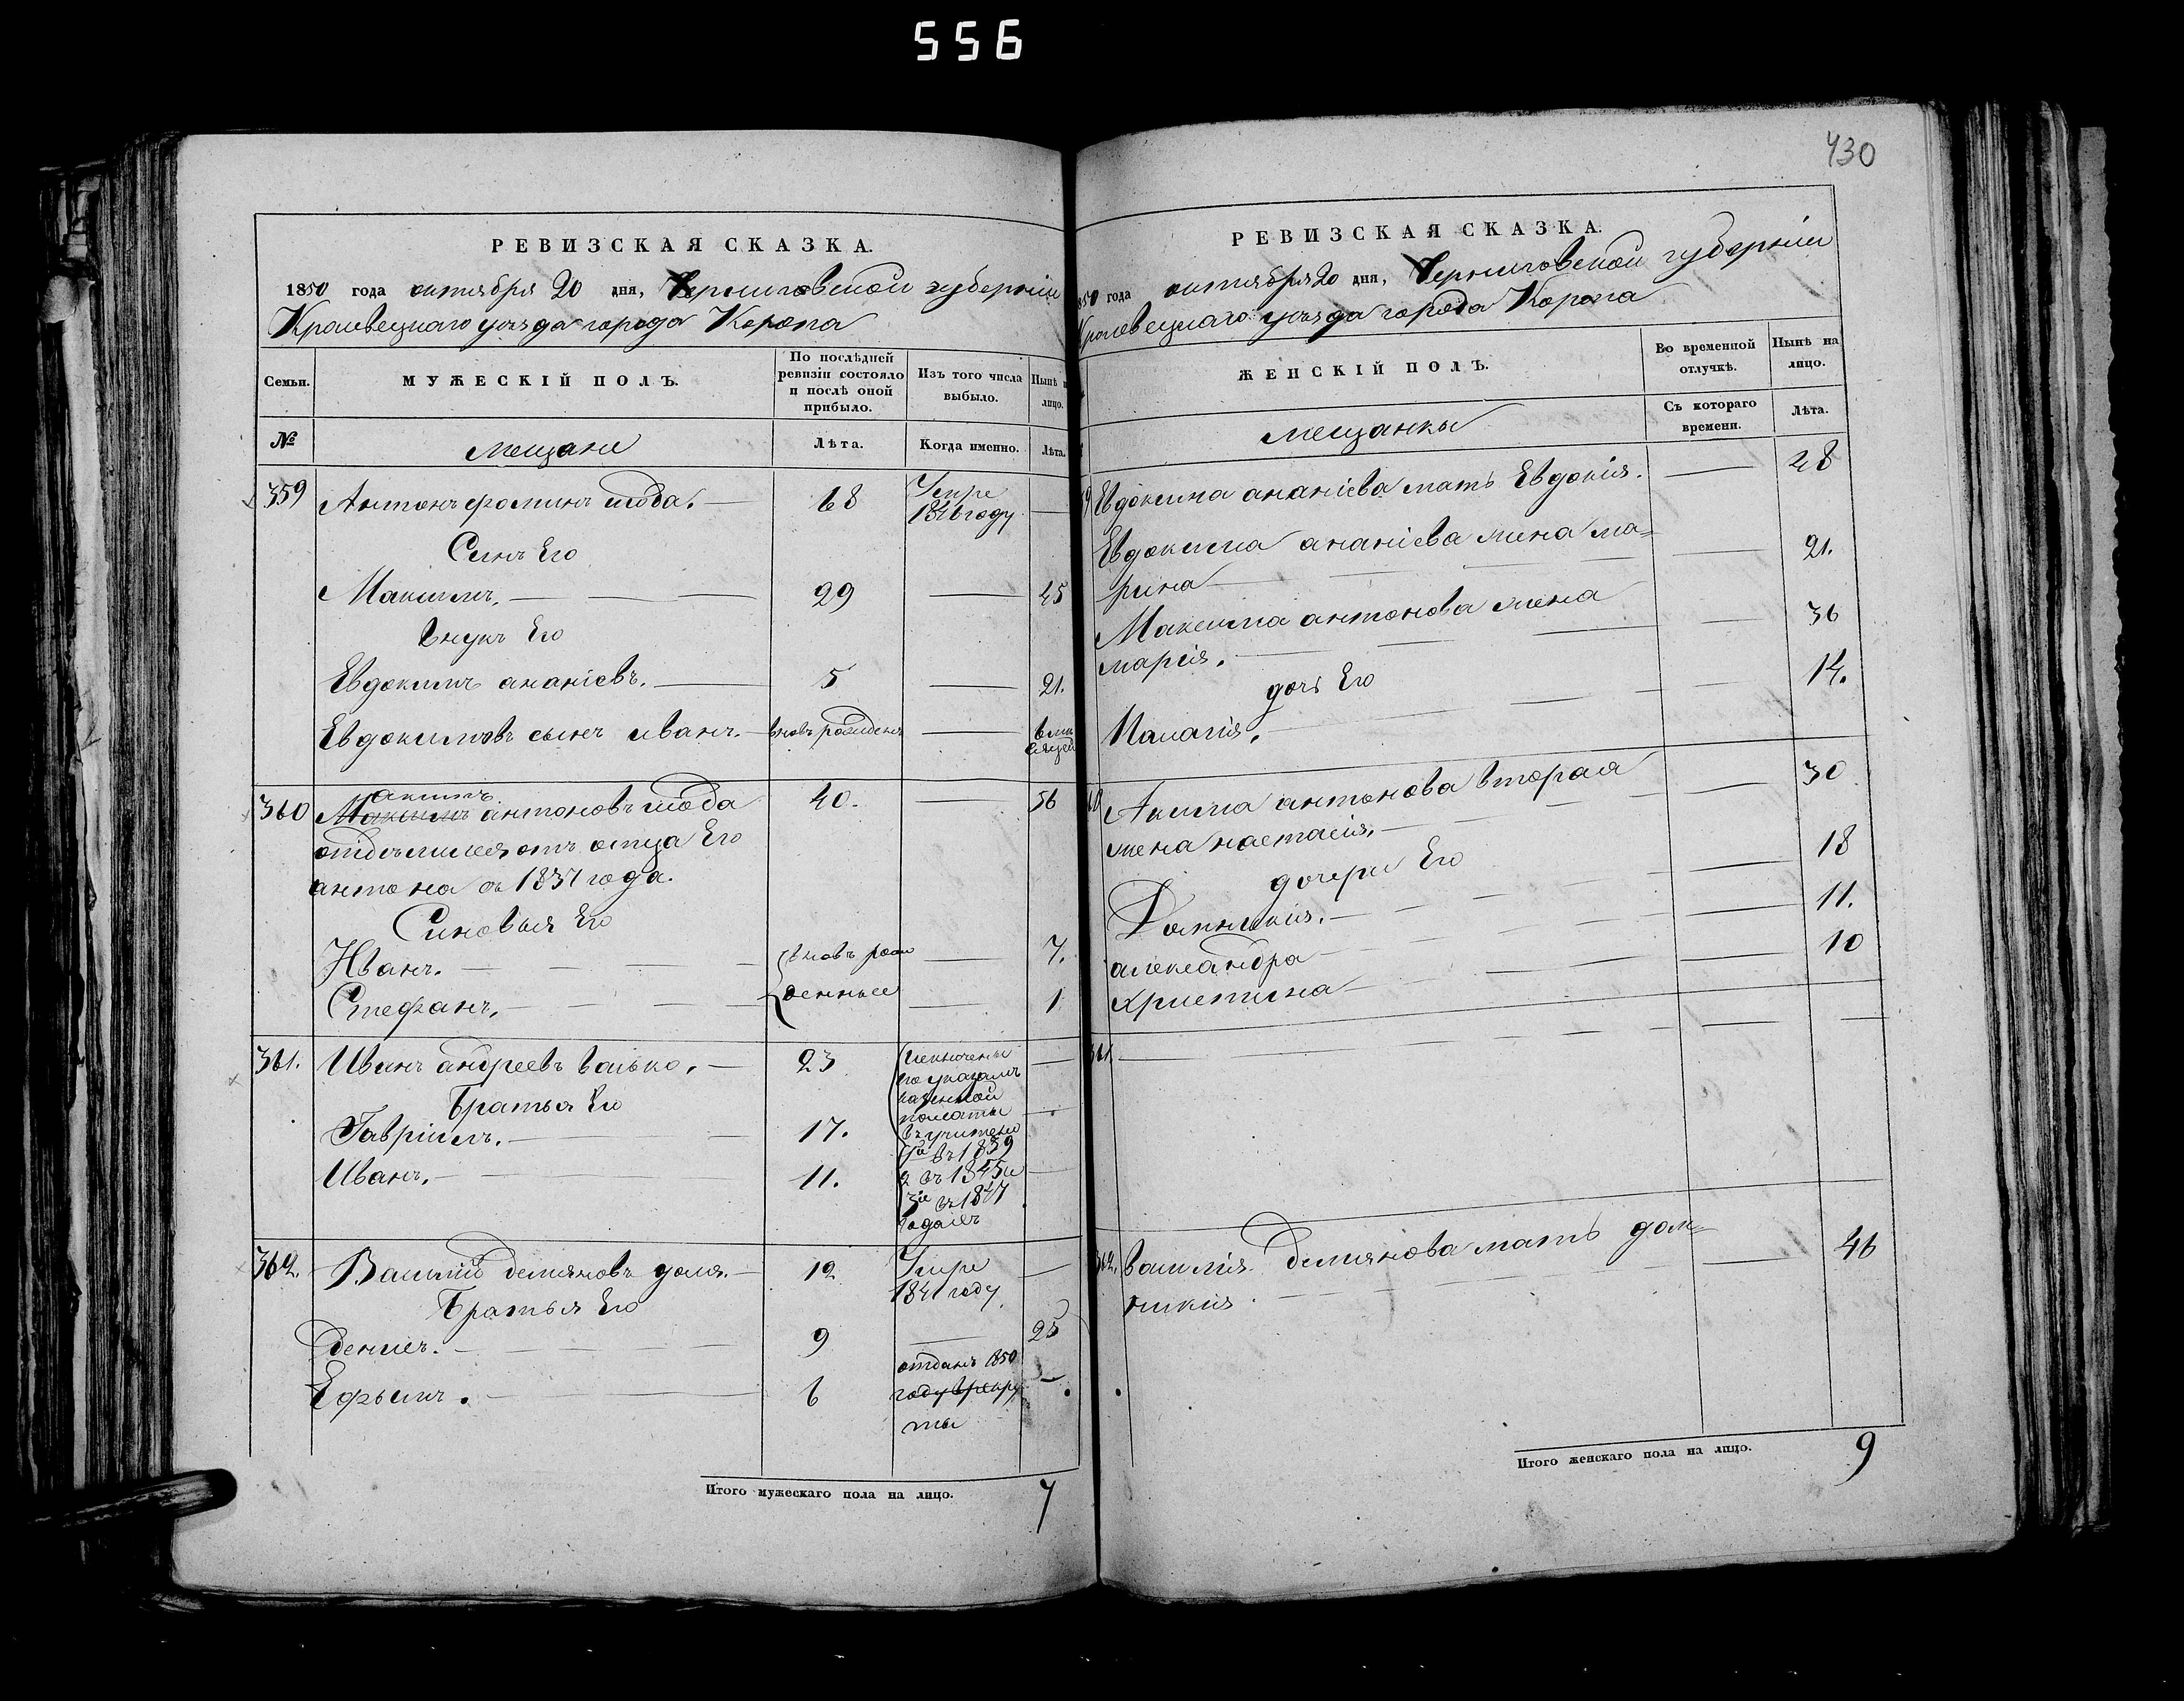 556
430
РЕВИЗСКАЯ СКАЗКА.
1850 года октября 20 дня, Черниговской губернїи
Кролевецкаго уѣзда города Коропа
Семьи. МУЖЕСКІЙ ПОЛЪ. По послѣдней ревизіи состояло и послѣ оной прибыло. Изъ того числа выбыло. Нынѣ лицо.
№ мещане Лѣта. Когда именно. Лѣта.
359 Антонъ фоминъ 68 Умре 1846 году —
Синъ Его
Максимъ. 29 — 45
Внукъ Его
Евдокимъ ананіевъ. 5 — 21.
Евдокимовъ сынъ иванъ. вновь рожденъ — 6 месяцей
360 Максимъ акимъ антоновъ 40. — 56
отделился отъ отца Его
антона съ 1837 года.
Синовья Его
Иванъ. вновь рож — 7.
Стефанъ. денные — 1
361. Иванъ андреевъ 23 исключены —
по указамъ
казенной
Братья Его
палаты
Гавріилъ. 17. —
въ 1839
Иванъ. 11. 2 въ 1845 и —
3й въ 1847
годахъ
362. Василій демяновъ 12 Умре 1841 году —
Братья Его
денисъ. 9 — 25
Ефимъ. 6 отданъ 1850 году в рекруты —
Итого мужескаго пола на лицо. 7
РЕВИЗСКАЯ СКАЗКА.
1850 года октября 20 дня, Черниговской губерніи
Кролевецкаго уѣзда города Коропа
ЖЕНСКІЙ ПОЛЪ. Во временной отлучкѣ. Нынѣ на лицо.
мещанки Съ котораго времени. Лѣта.
Евдокима ананіева мать Евдокія. — 28
Евдокима ананіева жена ма=
рина — 21.
Максима антонова жена
марія. — 36
дочь Его
Палагія. — 14.
Акима антонова вторая
жена настасія. — 30
дочери Его
Домникія. — 18
александра — 11.
христина — 10
361. —
362. василія демянова мать дом=
никия. — 46
Итого женскаго пола на лицо. 9